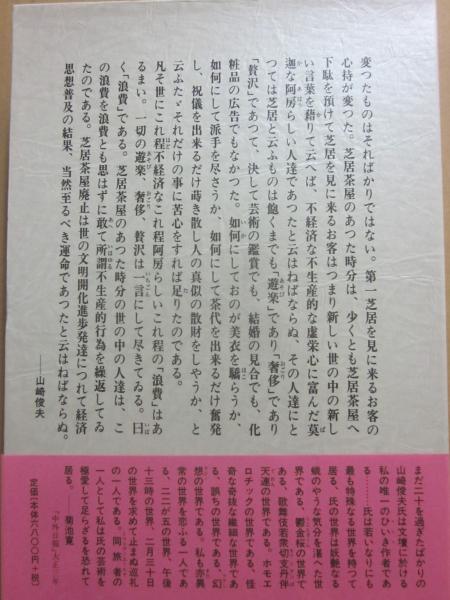 変つたものはそればかりではない。第一芝居を見に来るお客の
心持が変つた。芝居茶屋のあつた時分は、少くとも芝居茶屋へ
下駄を預けて芝居を見に来るお客はつまり新しい世の中の新し
い言葉を藉りて云へば、不経済な不生産的な虚栄心に富んだ莫
迦な阿房らしい人達であつたと云はねばならぬ、その人達にと
つては芝居と云ふものは飽くまでも「遊楽」であり「奢侈」であり
「贅沢」であつて、決して芸術の鑑賞でも、結婚の見合でも、化
粧品の広告でもなかつた。如何にしておのが美衣を驕らうか、
如何にして派手を尽さうか、如何にして茶代を出来るだけ奮発
し、祝儀を出来るだけ蒔き散し人の真似の散財をしやうか、と
云ふたゞそれだけの事に苦心をすれば足りたのである。
凡そ世にこれ程不経済なこれ程阿房らしいこれ程の「浪費」はあ
るまい。一切の遊楽、奢侈、贅沢は一言にして尽きてゐる。曰
く「浪費」である。芝居茶屋のあつた時分の世の中の人達は、こ
の浪費を浪費とも思はずに敢て所謂不生産的行為を繰返してゐ
たのである。芝居茶屋廃止は世の文明開化進歩発達につれて経済
思想普及の結果、当然至るべき運命であつたと云はねばならぬ。
――山崎俊夫
まだ二十を過ぎたばかりの
山崎俊夫氏は文壇に於ける
私の唯一のひいき作者であ
る……氏は若いなりにも
最も特殊なる世界を持つて
居る、氏の世界は妖艶なる
蛾のやうな気分を湛へた世
界である、鬱金桜の世界で
ある、歌舞伎若衆切支丹伴
天連の世界である。ホモエ
ロチックの世界である、怪
奇な奇抜な繊細な世界であ
る、誤ちの世界である、幻
想の世界である。私も亦異
常の世界を恋ふる一人であ
る、二二が五の世界、午後
十三時の世界、二月三十日
の世界を求めて止まぬ巡礼
の一人である。同旅の者の
一人として私は氏の芸術を
極愛して足らざるを恐れて
居る。 菊池寛
「中外日報」大正三年
定価[本体六八〇〇円+税]